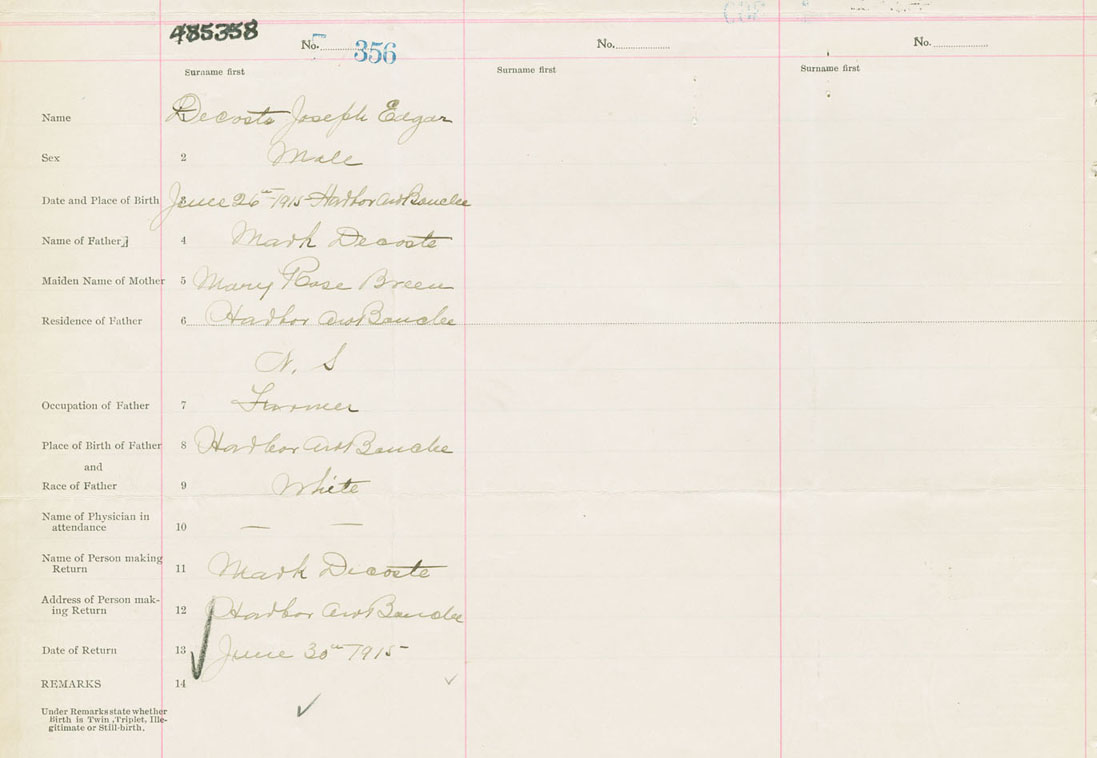 485358
No. 356 No. No.
Surname first Surname first Surname first
Name 1 Decoste Joseph Edgar
Sex 2 Male
Date and Place of Birth 3 June 26th 1915 Harbor au Bouche
Name of Father 4 Mark Decoste
Maiden Name of Mother 5 Mary Rose Breen
Residence of Father 6 Harbor au Bouche
N. S
Occupation of Father 7 Farmer
Place of Birth of Father 8 Harbor au Bouche
and
Race of Father 9 White
Name of Physician in
attendance 10 — —
Name of Person making
Return 11 Mark Decoste
Address of Person mak-
ing Return 12 Harbor au Bouche
Date of Return 13 June 30th 1915
REMARKS 14
Under Remarks state whether
Birth is Twin, Triplet, Ille-
gitimate or Still-birth.